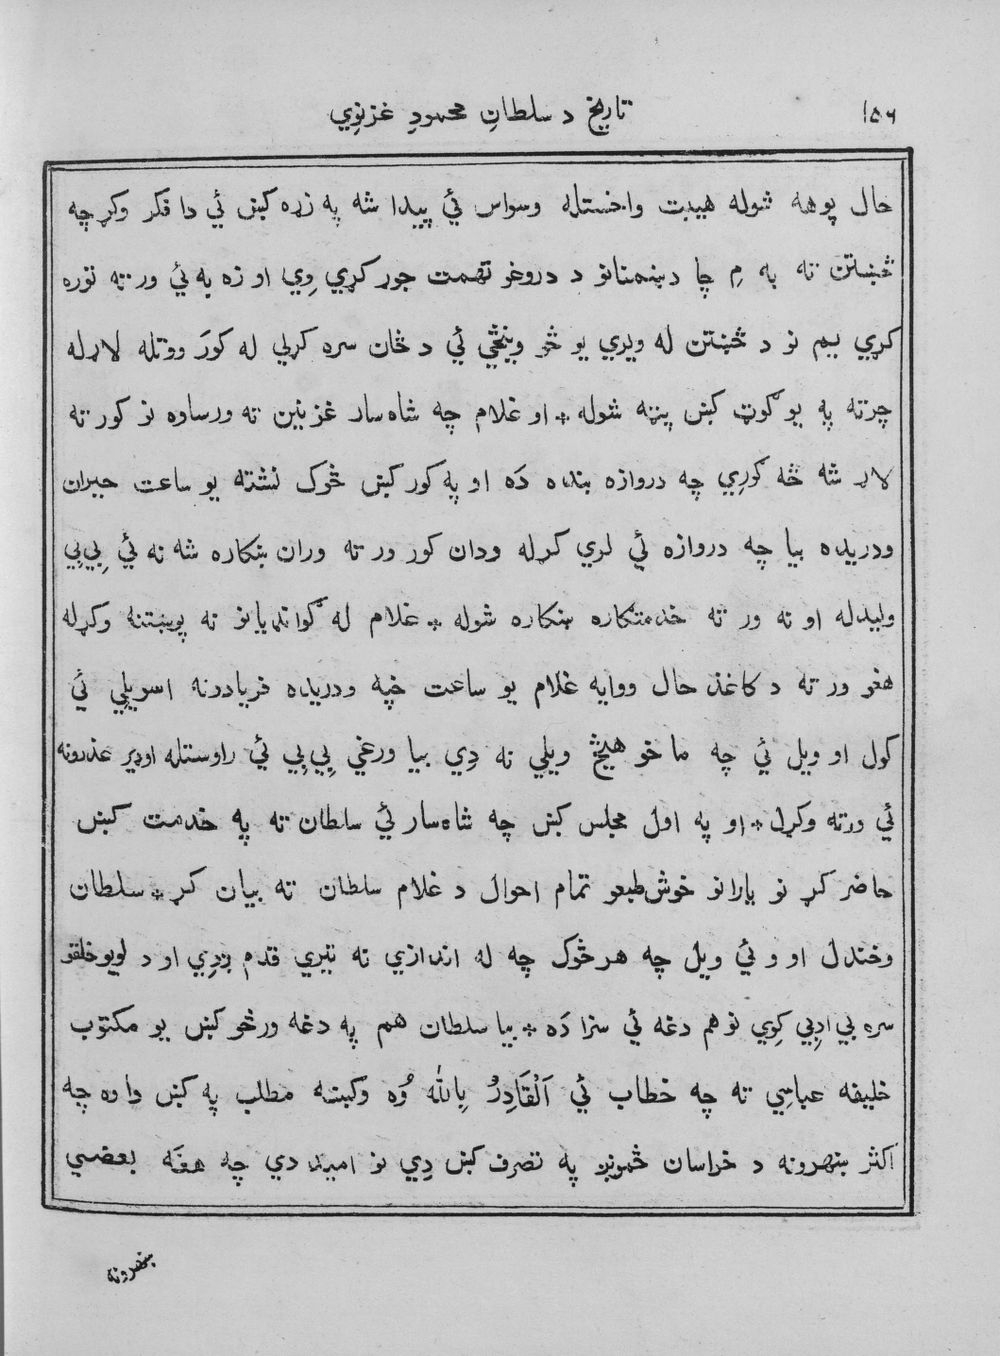 ١٥٦
تاریخ د سلطانِ محمودِ غزنوِي
حال پوهه شوله هیبت واخستله وسواس ئي پیدا شه په زړه کښ ئي دا فکر وکړ چه
څښتن ته به مِ چا دښمنانو د دروغو تهمت جوړ کړي وِي او زه به ئي ورته توره
کړي یم نو د څښتن له ویري یو څو وینځي ئي د ځان سره کړلي له کورَ ووتله لاړله
چرته په یو ګوټ کښ پټه شوله * او غلام چه شاه‌سار غزنین ته ورساوه نو کور ته
لاړ شه څه ګورِي چه دروازه بنده دَه او په کور کښ څوک نشته یو ساعت حیران
ودریده بیا چه دروازه ئي لري کړله ودان کور ورته وران ښکاره شه نه ئي بِي‌بِي
ولیدله او نه ورته خدمتکاره ښکاره شوله * غلام له ګواندیانو نه پوښتنه وکړله
هغو ورته د کاغذ حال ووایه غلام یو ساعت خپه ودریده فریادونه اسویلي ئي
کول او ویل ئي چه ما خو هیڅ ویلي نه دِي بیا ورغي بِي‌بِي ئي راوستله اوډیر عذرونه
ئي ورته وکړل * او په اول مجلس کښ چه شاه‌سار ئي سلطان ته په خدمت کښ
حاضر کړ نو یارانو خوش‌طبعو تمام احوال د غلام سلطان ته بیان کړ * سلطان
وخندل او و ئي ویل چه هرڅوک چه له اندازي نه تیري قدم ږدِي او د لویوخلقو
سره بي ادبِي کوِي نو هم دغه ئي سزا دَه * بیا سلطان هم په دغه ورځو کښ یو مکتوب
خلیفه عباسِي ته چه خطاب ئي اَلْقَادِرُ بِالله وُه وکیښه مطلب په کښ دا وه چه
اکثر ښهرونه د خراسان څمونږ په تصرف کښ دِي نو امید دي چه هغَه بعضي
ښهرونه